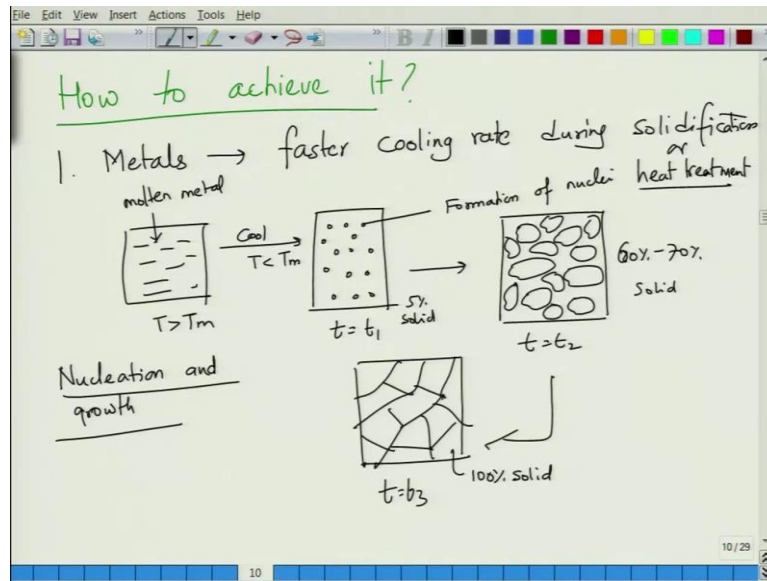 File Edit View Insert Actions Tools Help
How to achieve it?
1. Metals → faster cooling rate during solidification
or
heat treatment
molten metal
Formation of nuclei
Cool
T < Tm
T > Tm
t = t1
5%
solid
60% - 70%
Solid
t = t2
Nucleation and
growth
100% solid
t = t3
10 / 29
10